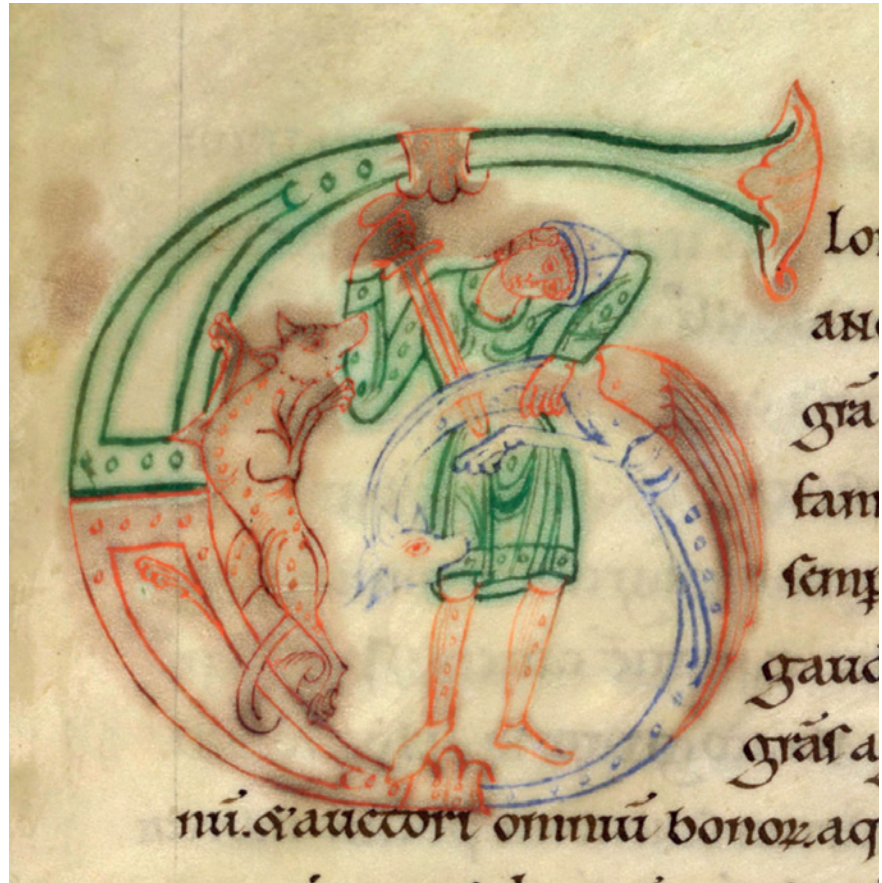 Glor
anc
grā
fam
semp
gaud
grās a
nū. & auctori omniū bonoꝝ. aq